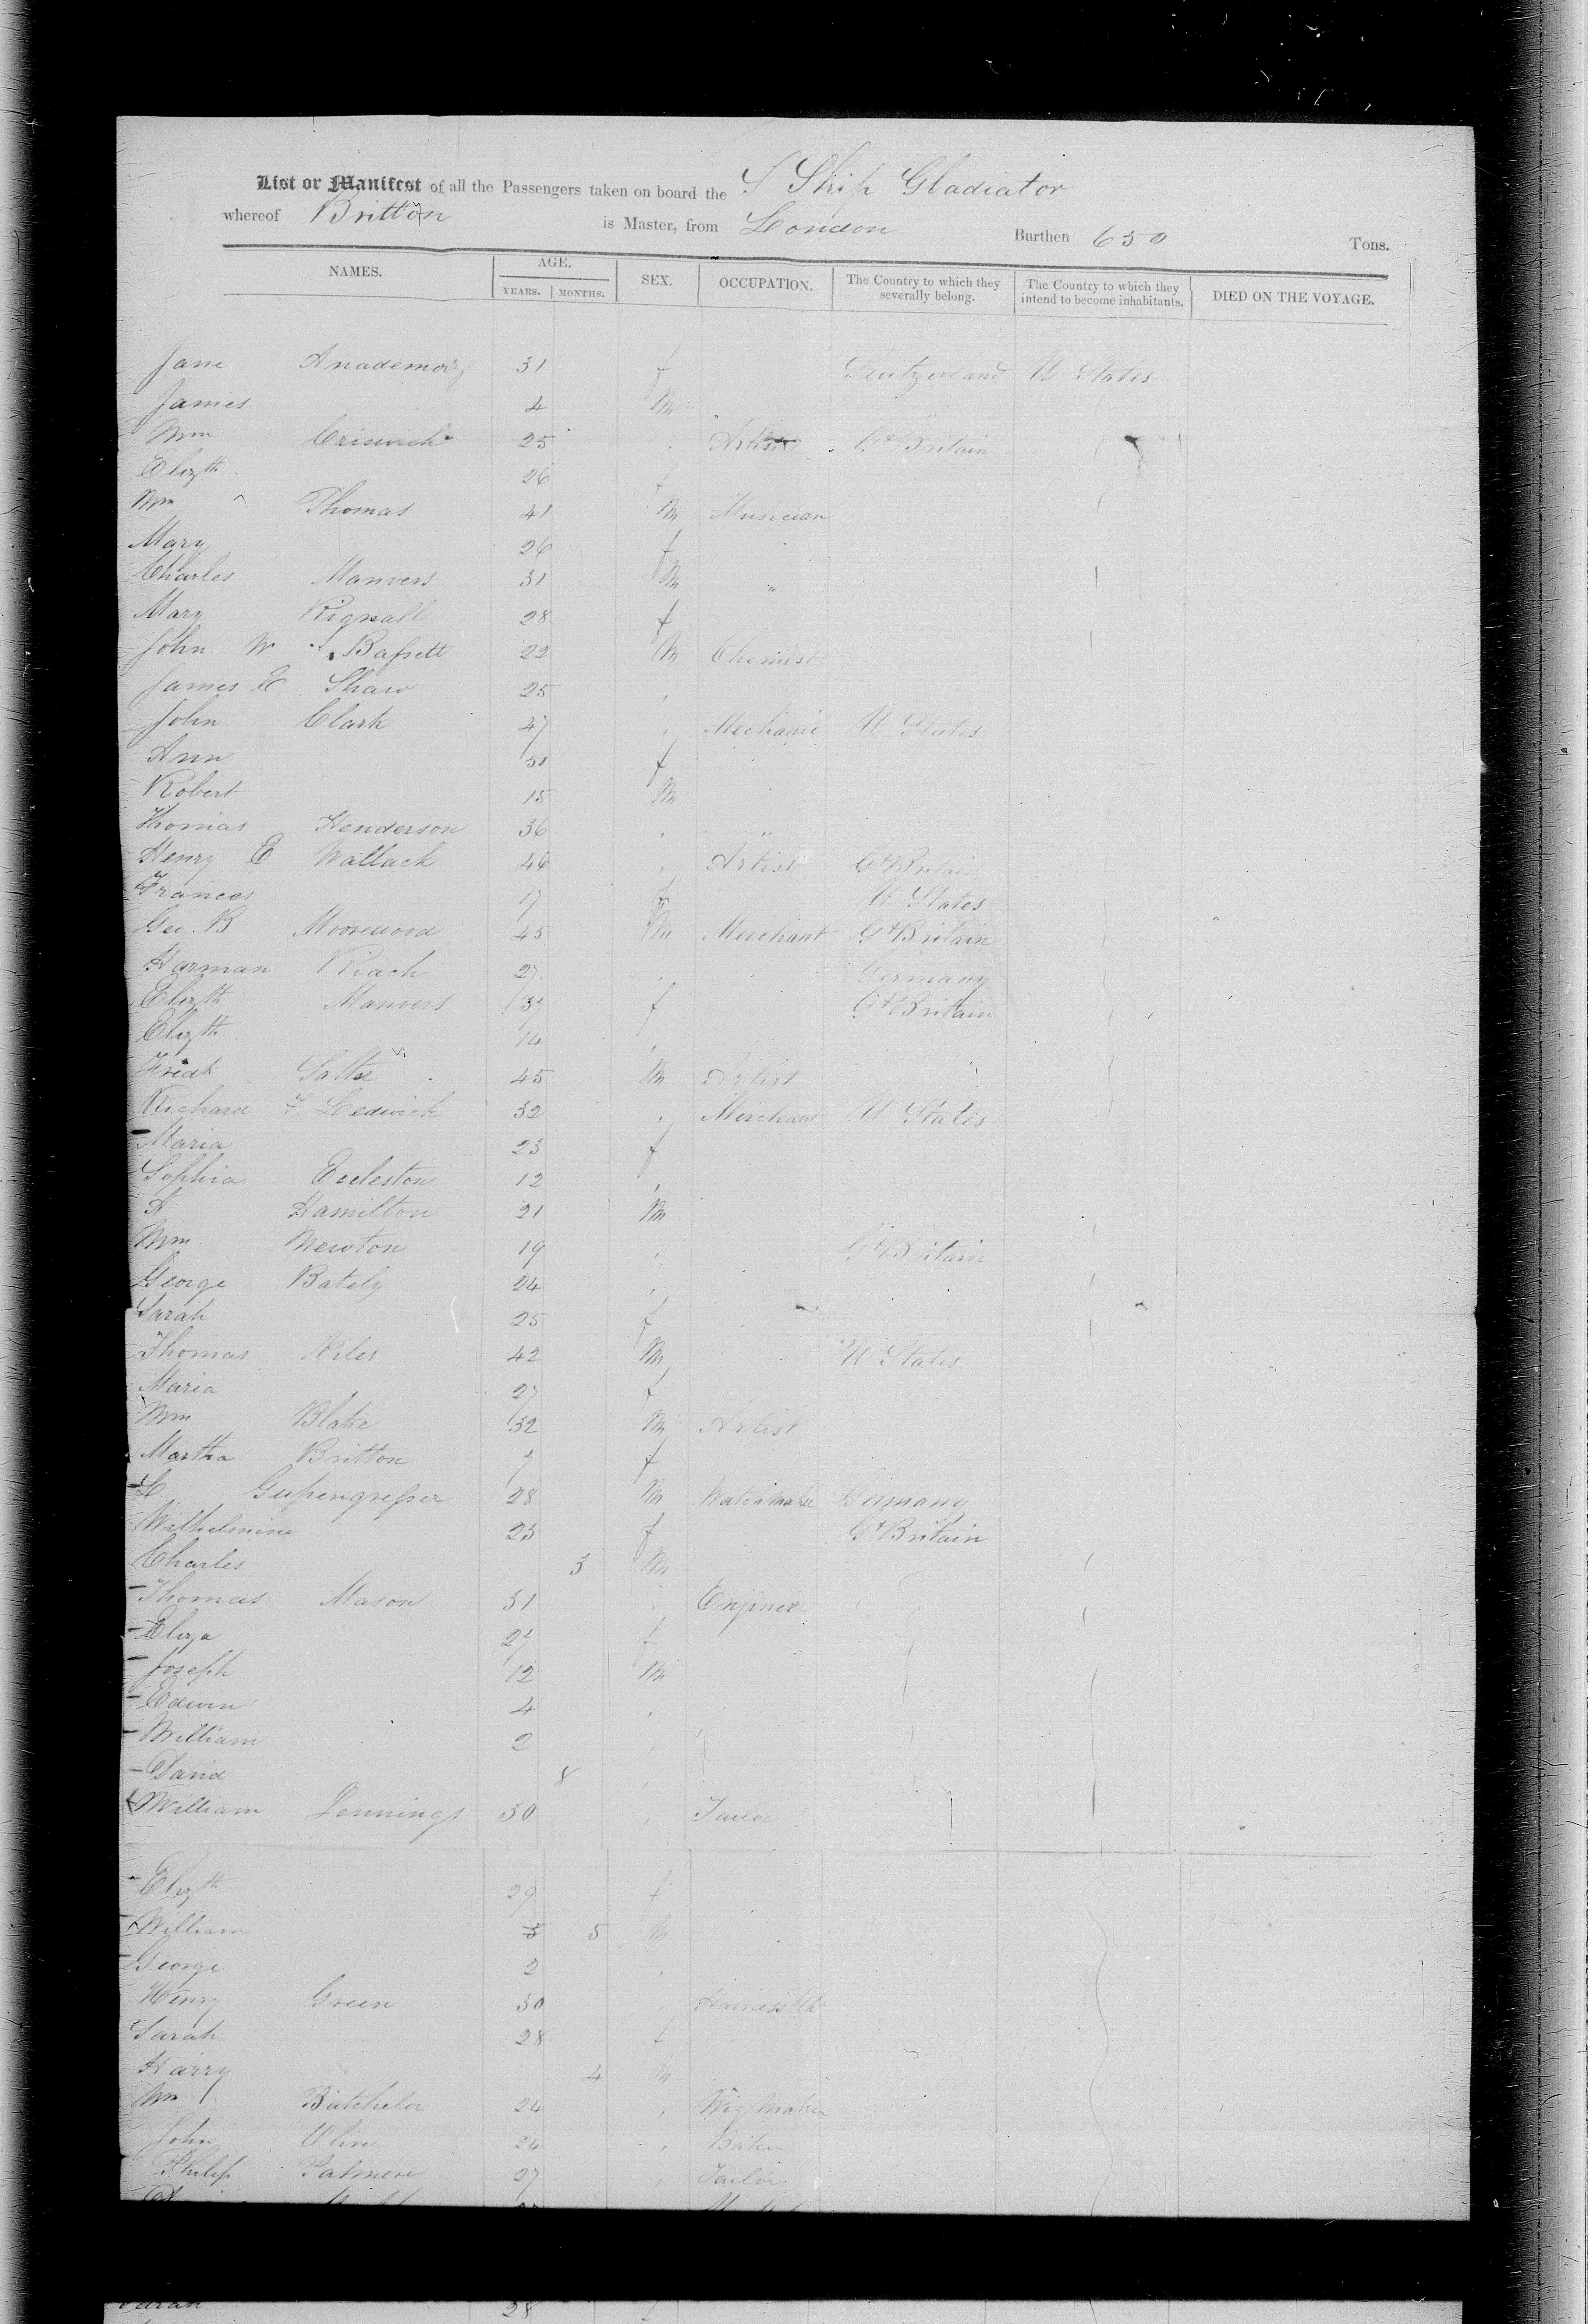 List or Manifest of all the Passengers taken on board the S Ship Gladiator
whereof Britton is Master, from London Burthen 650 Tons.
NAMES. AGE. SEX. OCCUPATION. The Country to which they severally belong. The Country to which they intend to become inhabitants. DIED ON THE VOYAGE.
YEARS. MONTHS.
Jane 31 f U States
James 4 m
Wm Criswick 25 " Artist Gt Britain
Elizth 26 f
Wm Thomas 41 m Musician
Mary 26 f
Charles Manvers 31 m "
Mary Rignall 28 f
John W Bassett 22 m Chemist
James E Shaw 25 "
John Clark 47 " Mechanic U States
Ann 50 f
Robert 15 m
Thomas Henderson 36 " "
Henry E Wallack 46 " Artist Gt Britain
Frances 17 f U States
Geo. B Moorewood 45 m Merchant Gt Britain
Harman Riach 27 " Germany
Elizth Manvers 37 f Gt Britain
Elizth 14 "
45 m Artist
Richard F. Ledwick 32 " Merchant U States
Maria 23 f
Sophia Eccleston 12 "
A Hamilton 21 m
Wm Newton 19 " Gt Britain
George Bately 24 "
Sarah 25 f
Thomas Niles 42 m U States
Maria 27 f
Wm Blake 32 m Artist
Martha Britton 7 f
28 m Watchmaker Germany
Wilhelmine 23 f Gt Britain
Charles 3 m
Thomas Mason 31 " Enjineer
Eliza 27 f
Joseph 12 m
Edwin 4 "
William 2 "
David 8 "
William Jennings 30 " Tailor
Elizth 29 f
William 5 m
George 2 "
Henry Green 30 "
Sarah 28 f
Harry 4 m
Wm Batchelor 24 " Wig Maker
John 24 " Baker
Philip Patmore 27 " Tailor
Sarah 28 f